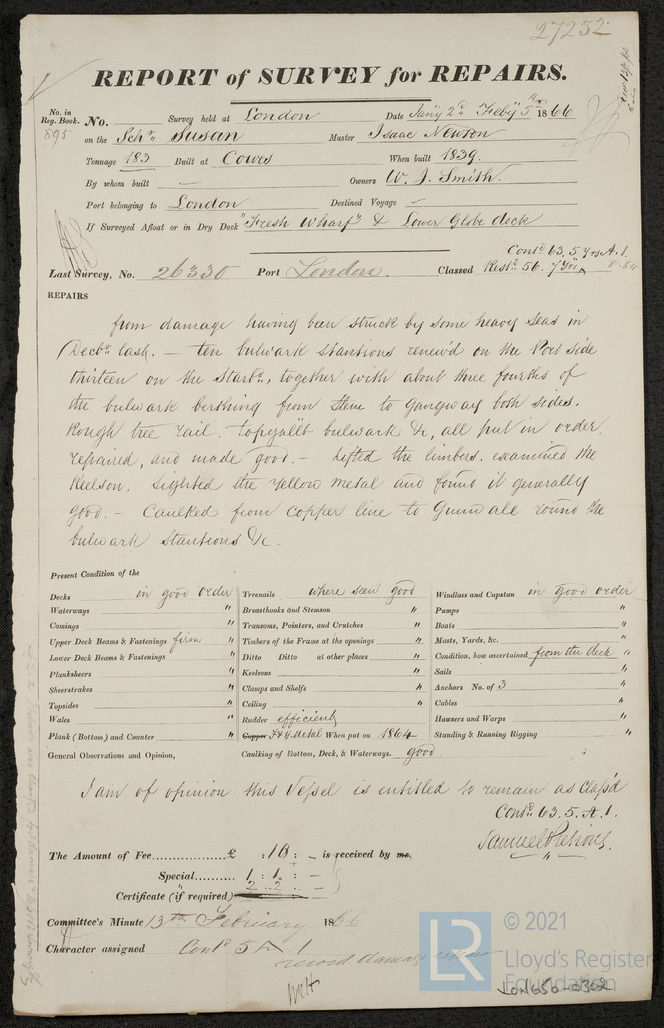 27252
REPORT of SURVEY for REPAIRS.
No. in Reg. Book. No. Survey held at London Date Jany 2d Feby 5th 1866
895 on the Schr. Susan Master Isaac Newton
Tonnage 183 Built at Cowes When built 1839.
By whom built — Owners W. J. Smith.
Port belonging to London Destined Voyage —
If Surveyed Afloat or in Dry Dock "Fresh Wharf" & Lower Globe dock
Contd. 63. 5 Yrs A. 1.
Last Survey, No. 26330 Port London. Classed Restd. 56. 7 Yrs A 8.64
REPAIRS
from damage having been struck by some heavy Seas in
Decbr. last. — ten bulwark Stantions renew'd on the Port side
thirteen on the Starbd., together with about three fourths of
the bulwark berthing from Stem to Gangway both sides.
Rough tree rail. topgallt bulwark &c, all put in order.
repaired, and made good. — Lifted the limbers. examined the
Keelson. Sighted the Yellow Metal and found it generally
good. — Caulked from copper line to Gunwale round the
bulwark Stantions &c.
Present Condition of the
Decks in good order
Waterways "
Comings "
Upper Deck Beams & Fastenings firm "
Lower Deck Beams & Fastenings "
Planksheers "
Sheerstrakes "
Topsides "
Wales "
Plank (Bottom) and Counter "
Treenails where seen good
Breasthooks and Stemson "
Transoms, Pointers, and Crutches "
Timbers of the Frame at the openings "
Ditto Ditto at other places "
Keelsons "
Clamps and Shelfs "
Ceiling "
Rudder efficient
Copper Y. Metal When put on 1864
Windlass and Capstan in good order
Pumps "
Boats "
Masts, Yards, &c. "
Condition, how ascertained from the deck "
Sails "
Anchors No. of 3 "
Cables "
Hawsers and Warps "
Standing & Running Rigging "
General Observations and Opinion, Caulking of Bottom, Deck, & Waterways. good.
I am of opinion this Vessel is entitled to remain as Class'd
Contd. 63. 5. A. 1.
The Amount of Fee...............£ : 10 : — is received by me,
Special.......... 1 : 1 : —
2 . 2 . —
Certificate (if required)
Committee's Minute 13th February 1866
Character assigned Contd 5 A 1
record damage repairs
© 2021
LR
Lloyd's Register
Foundation
LON650-0302